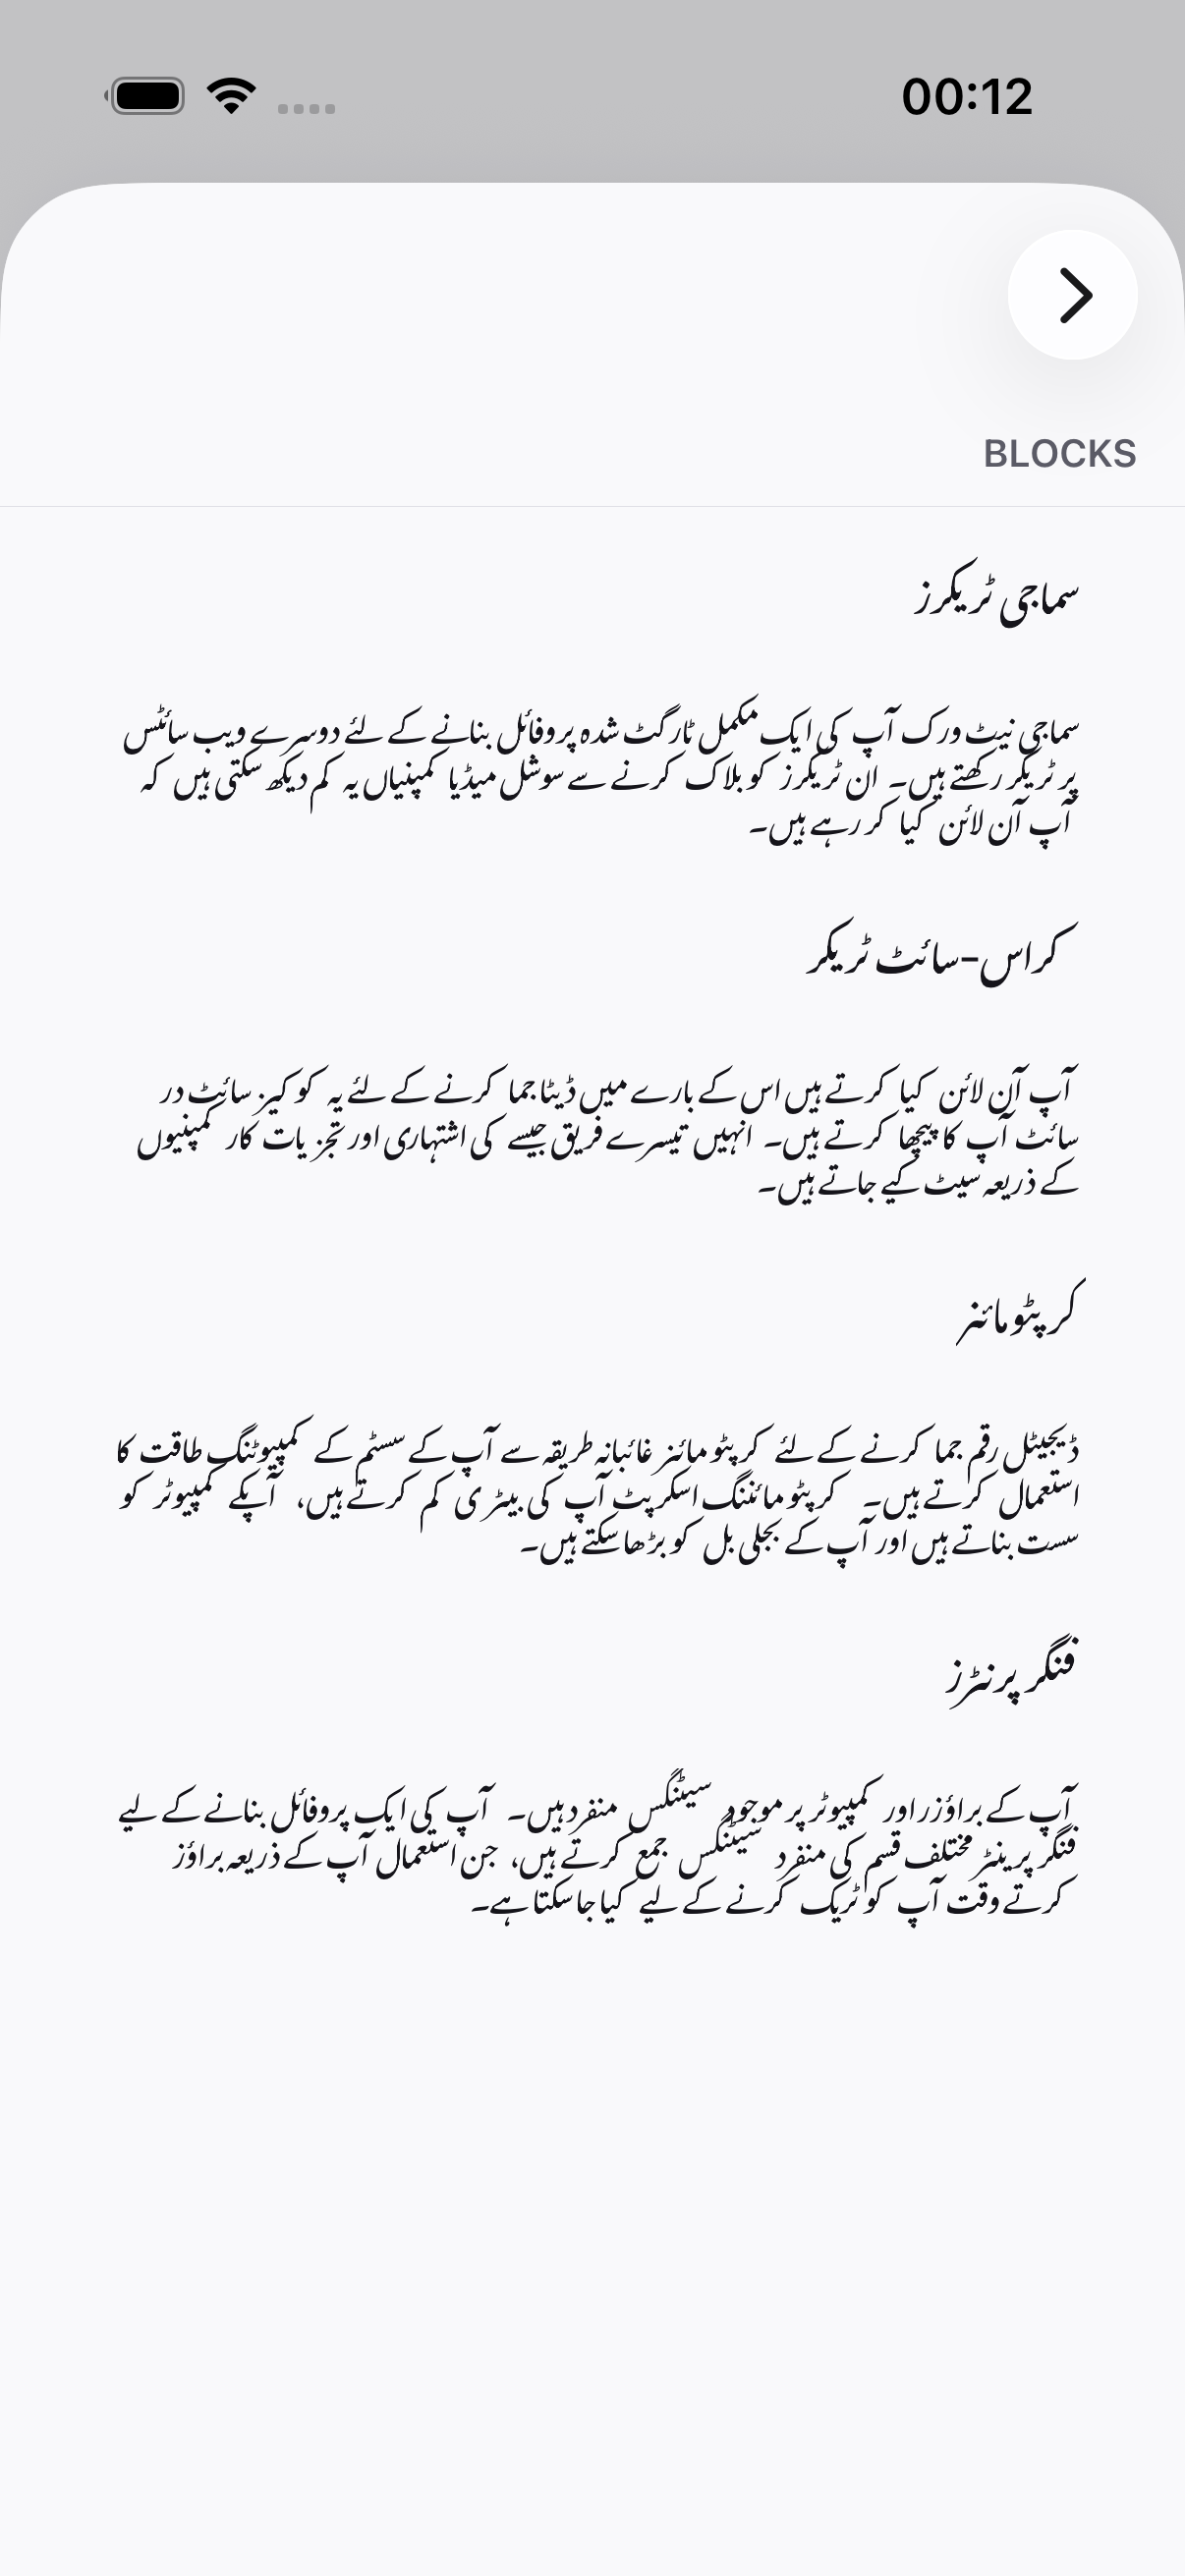 00:12
BLOCKS
سماجی ٹریکرز
سماجی نیٹ ورک آپ کی ایک مکمل ٹارگٹ شدہ پروفائل بنانے کے لئے دوسرے ویب سائٹس
پر ٹریکر رکھتے ہیں۔ ان ٹریکرز کو بلاک کرنے سے سوشل میڈیا کمپنیاں یہ کم دیکھ سکتی ہیں کہ
آپ آن لائن کیا کر رہے ہیں۔
کراس-سائٹ ٹریکر
آپ آن لائن کیا کرتے ہیں اس کے بارے میں ڈیٹا جما کرنے کے لئے یہ کوکیز سائٹ در
سائٹ آپ کا پیچھا کرتے ہیں۔ انہیں تیسرے فریق جیسے کی اشتہاری اور تجزیات کار کمپنیوں
کے ذریعہ سیٹ کیے جاتے ہیں۔
کرپٹومائنر
ڈیجیٹل رقم جما کرنے کے لئے کرپٹومائنز غائبانہ طریقہ سے آپ کے سسٹم کے کمپیوٹنگ طاقت کا
استعمال کرتے ہیں۔ کرپٹومائننگ اسکرپٹ آپ کی بیٹری کم کرتے ہیں، آپکے کمپیوٹر کو
سست بناتے ہیں اور آپ کے بجلی بل کو بڑھا سکتے ہیں۔
فنگر پرنٹرز
آپ کے براؤزر اور کمپیوٹر پر موجود سیٹنگس منفرد ہیں۔ آپ کی ایک پروفائل بنانے کے لیے
فنگر پرینٹر مختلف قسم کی منفرد سیٹنگس جمع کرتے ہیں، جن استعمال آپ کے ذریعہ براؤز
کرتے وقت آپ کو ٹریک کرنے کے لیے کیا جا سکتا ہے۔